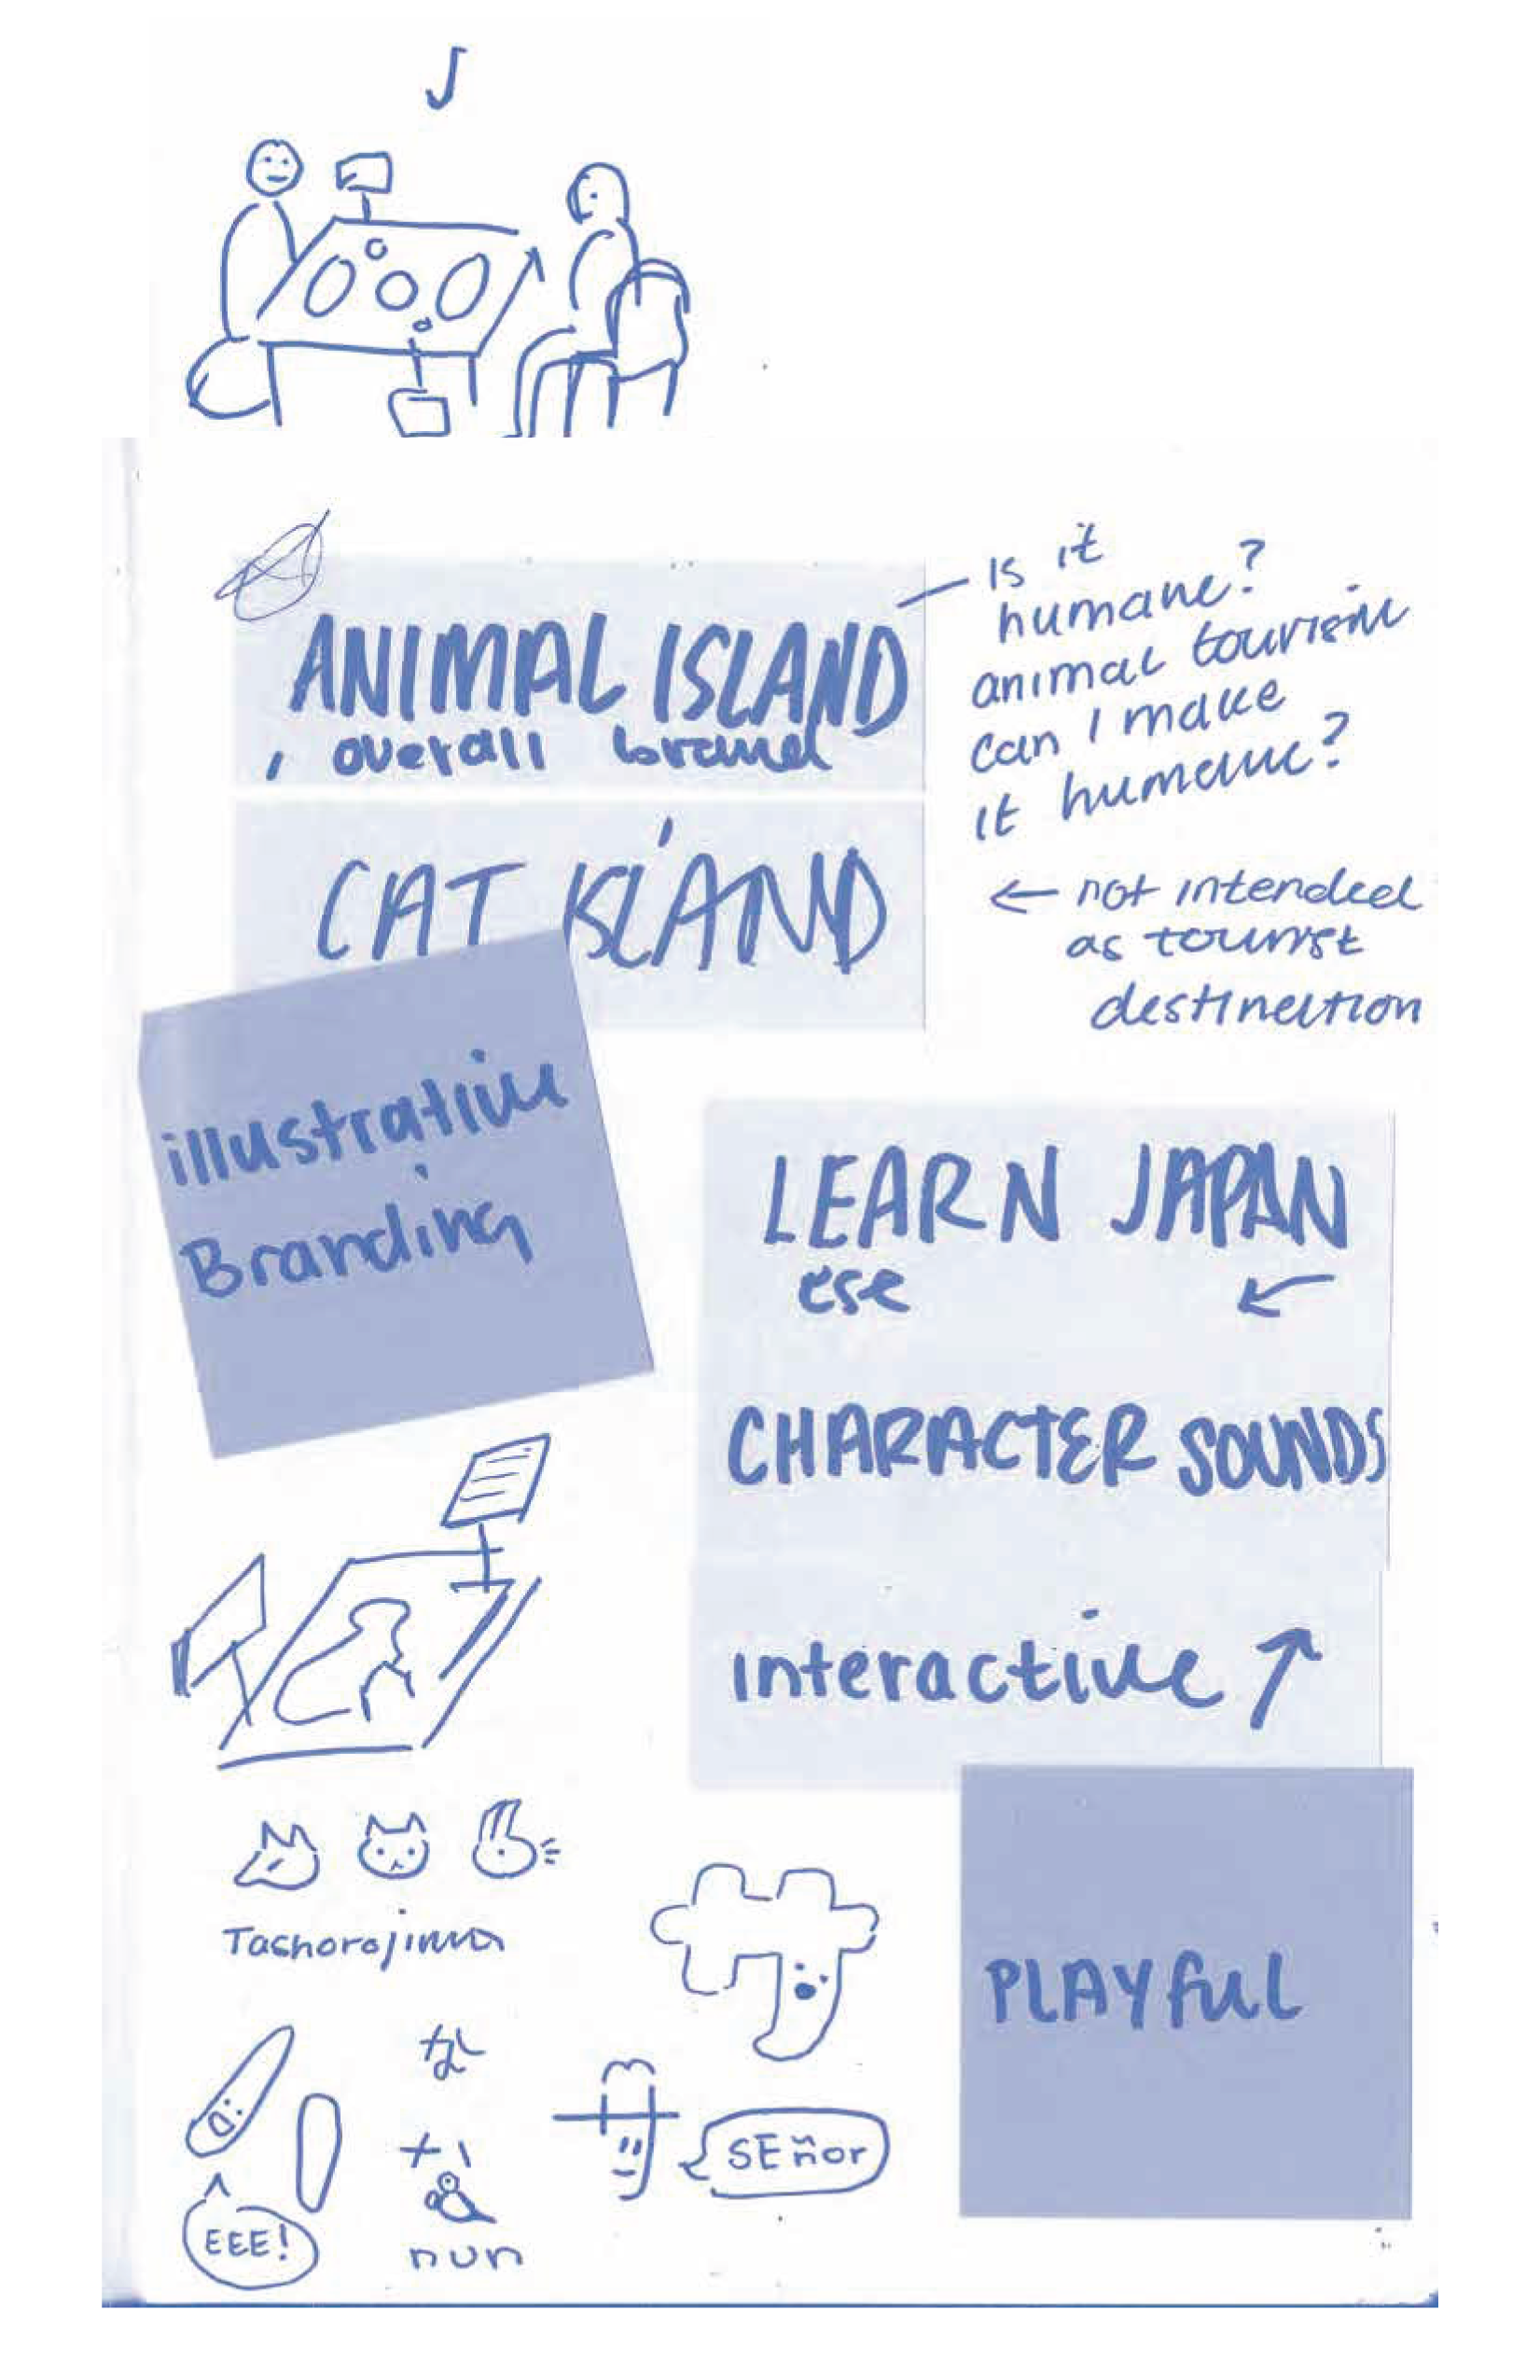 ANIMAL ISLAND
overall brand
Is it
humane?
animal tourism
can I make
it humane?
CAT ISLAND
← not intended
as tourist
destination
illustrative
Branding
LEARN JAPAN
ese ↙
CHARACTER SOUNDS
interactive ↗
Tashorojima
PLAYfUL
な
SEñor
EEE!
nun